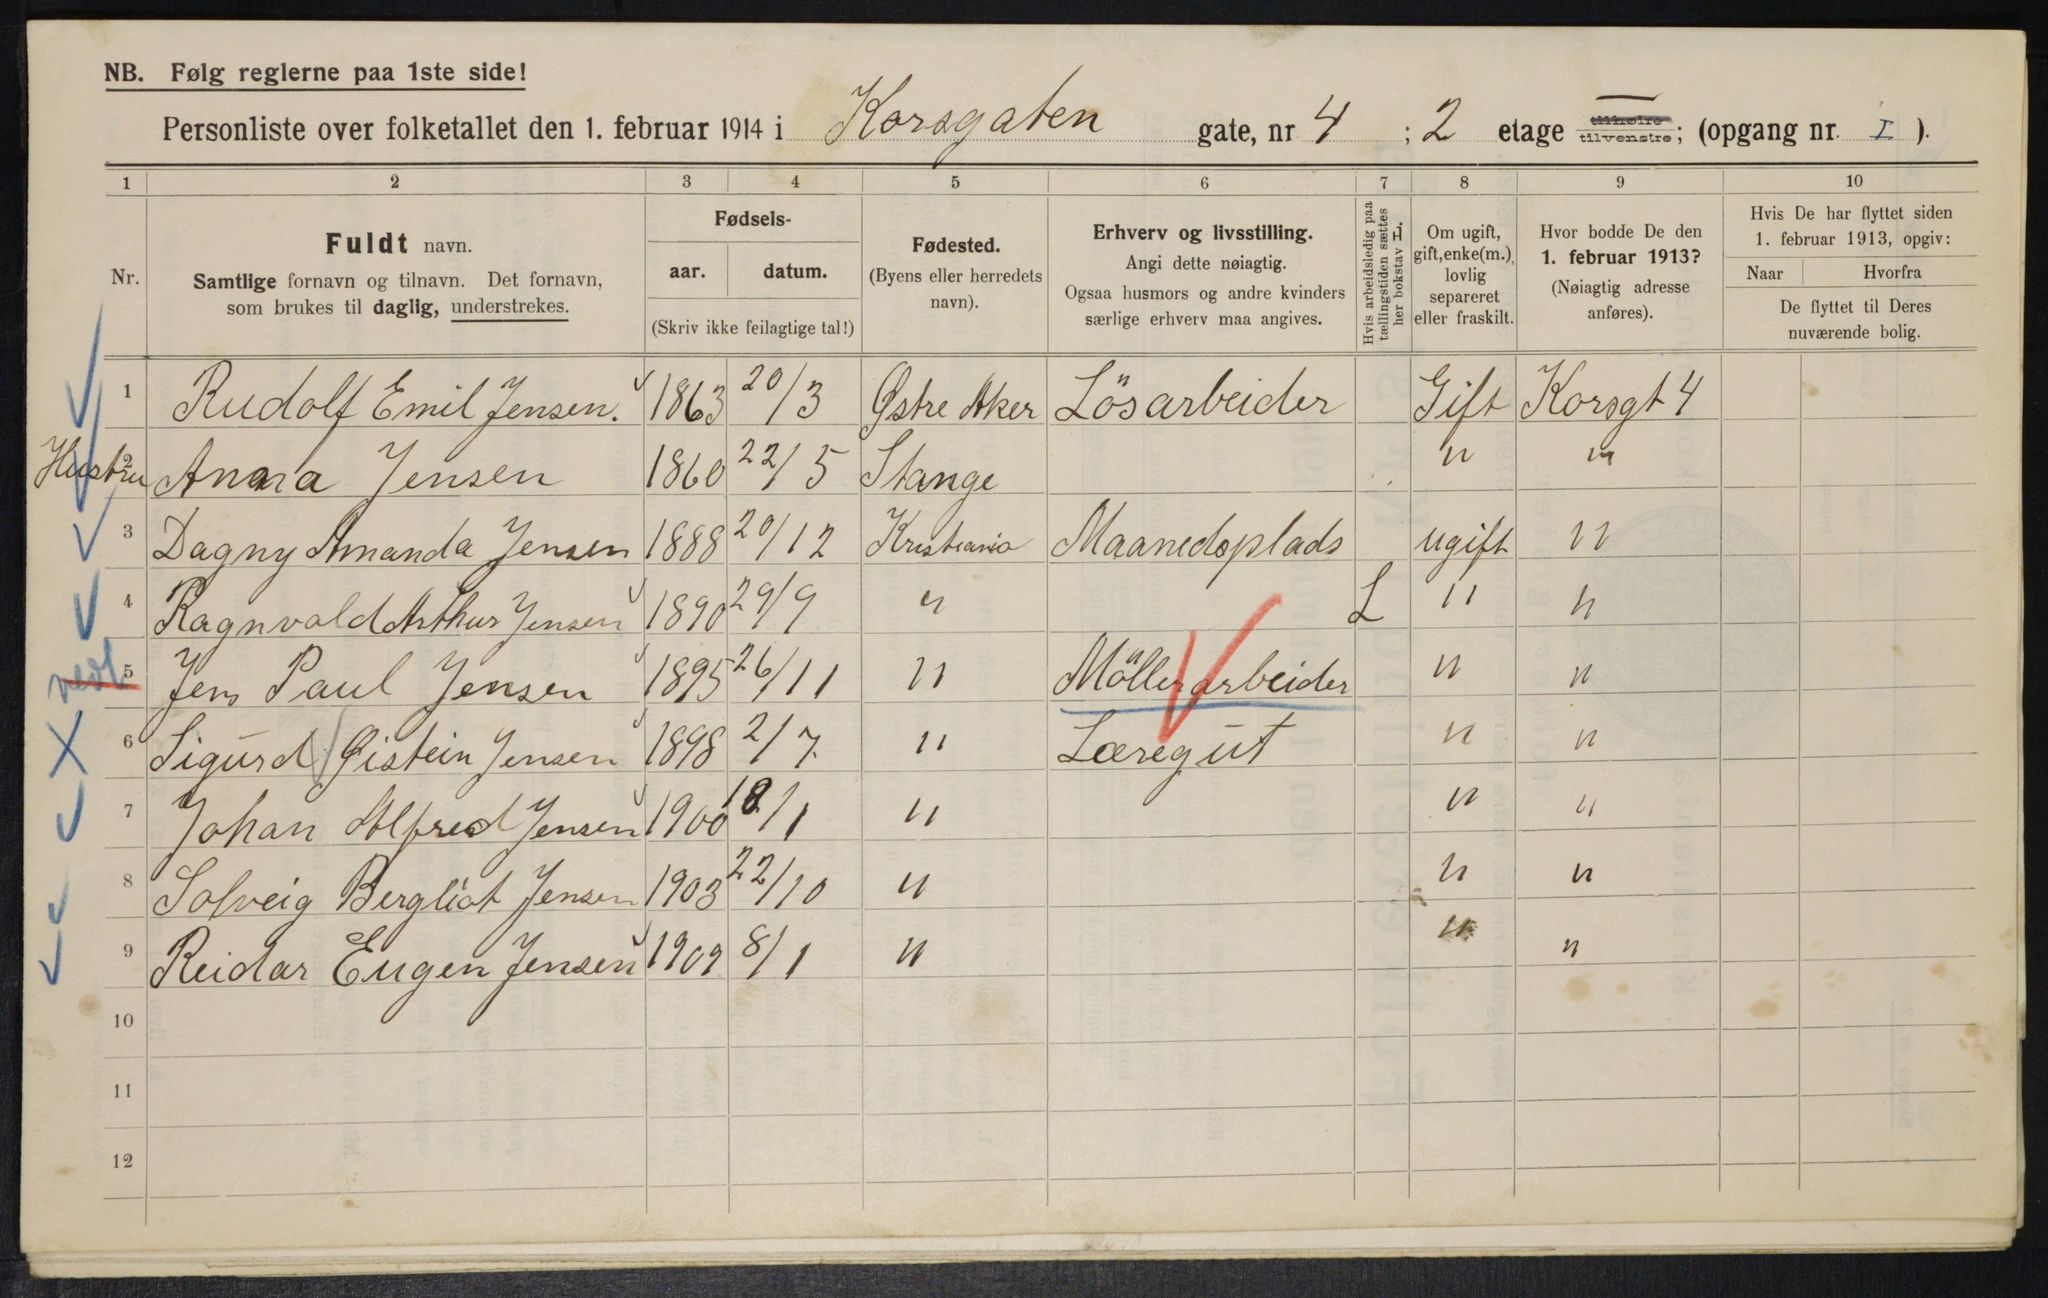 NB. Følg reglerne paa 1ste side!
Personliste over folketallet den 1. februar 1914 i Korsgaten gate, nr 4 ; 2 etage tilhøire tilvenstre; (opgang nr. I ).
1 2 3 4 5 6 7 8 9 10
Nr.
Fuldt navn.
Samtlige fornavn og tilnavn. Det fornavn,
som brukes til daglig, understrekes.
Fødsels-
aar. datum.
(Skriv ikke feilagtige tal!)
Fødested.
(Byens eller herredets
navn).
Erhverv og livsstilling.
Angi dette nøiagtig.
Ogsaa husmors og andre kvinders
særlige erhverv maa angives.
Hvis arbeidsledig paa
tællingstiden sættes
her bokstav L.
Om ugift,
gift, enke(m.),
lovlig
separeret
eller fraskilt.
Hvor bodde De den
1. februar 1913?
(Nøiagtig adresse
anføres).
Hvis De har flyttet siden
1. februar 1913, opgiv:
Naar Hvorfra
De flyttet til Deres
nuværende bolig.
1 Rudolf Emil Jensen. 1863 20/3 Østre Aker Lösarbeider Gift Korsgt 4
Hustru 2 Anna Jensen 1860 22/5 Stange " "
3 Dagny Amanda Jensen 1888 20/12 Kristiania Maanedsplads ugift "
4 Ragnvald Arthur Jensen 1890 29/9 " L " "
5 Jens Paul Jensen 1895 26/11 " Möllerarbeider " "
6 Sigurd Øistein Jensen 1898 2/7 " Læregut " "
7 Johan Alfred Jensen 1900 18/1 " " "
8 Solveig Bergliot Jensen 1903 22/10 " " "
9 Reidar Eugen Jensen 1909 8/1 " " "
10
11
12